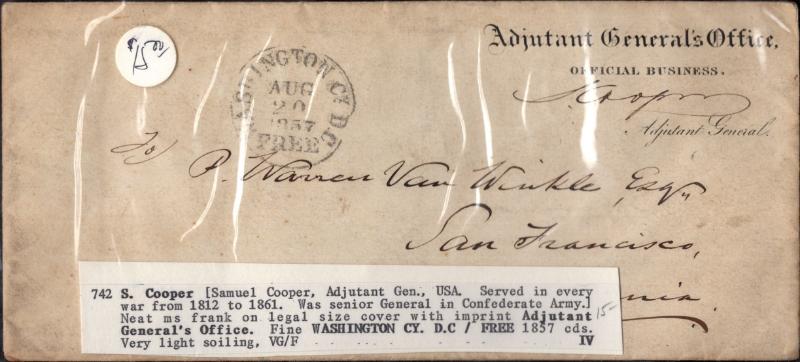 Adjutant General's Office,
OFFICIAL BUSINESS.
S. Cooper
Adjutant General.
WASHINGTON CY. D.C.
AUG
20
1857
FREE
To P. Warren Van Winkle, Esqr
San Francisco,
nia.
742 S. Cooper [Samuel Cooper, Adjutant Gen., USA. Served in every
war from 1812 to 1861. Was senior General in Confederate Army.]
Neat ms frank on legal size cover with imprint Adjutant
General's Office. Fine WASHINGTON CY. D.C / FREE 1857 cds.
Very light soiling, VG/F IV
15-